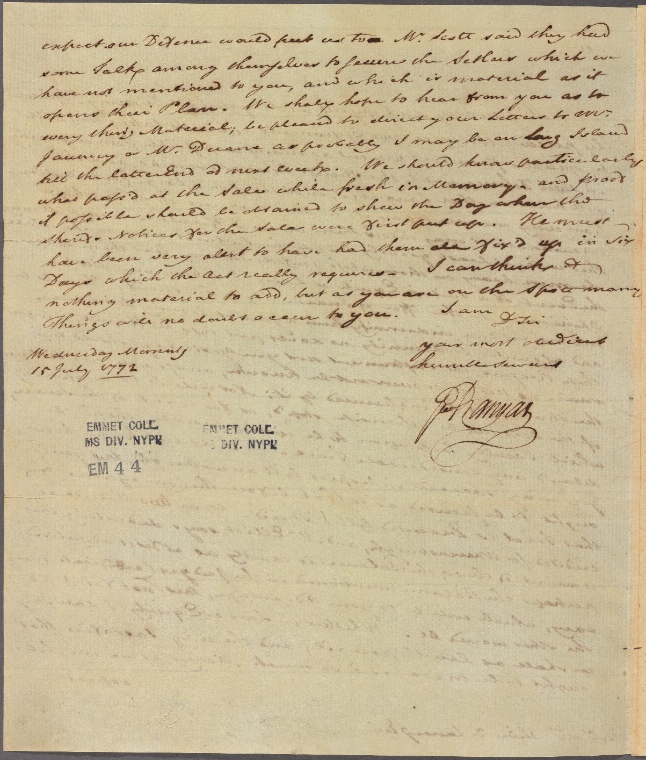 expect our Defence would put us to Mr. Scott said they had
some Talk among themselves to secure the Settlers which we
have not mentioned to you, and which is material as it
opens their Plan. We shall hope to hear from you as to
every thing Material, be pleased to direct your Letters to Mr.
Jauncey or Mr. Duane as probably I may be on Long Island
till the latter End of next week. We should know particularly
what pass'd at the Sale while fresh in Memory. and proof
if possible should be obtained to shew the Day when the
Sherifs Notices for the Sale were first put up. He must
have been very alert to have had them all Fix'd up in Six
Days which the Act really requires. I can think of
nothing material to add, but as you are on the Spot many
Things will no doubt occur to you. I am
D Sir
your most obedient
humble servant
Wednesday Morning
15 July 1772
Go Banyar
EMMET COLL.
MS DIV. NYPL
EMMET COLL.
DIV. NYPL
EM 44